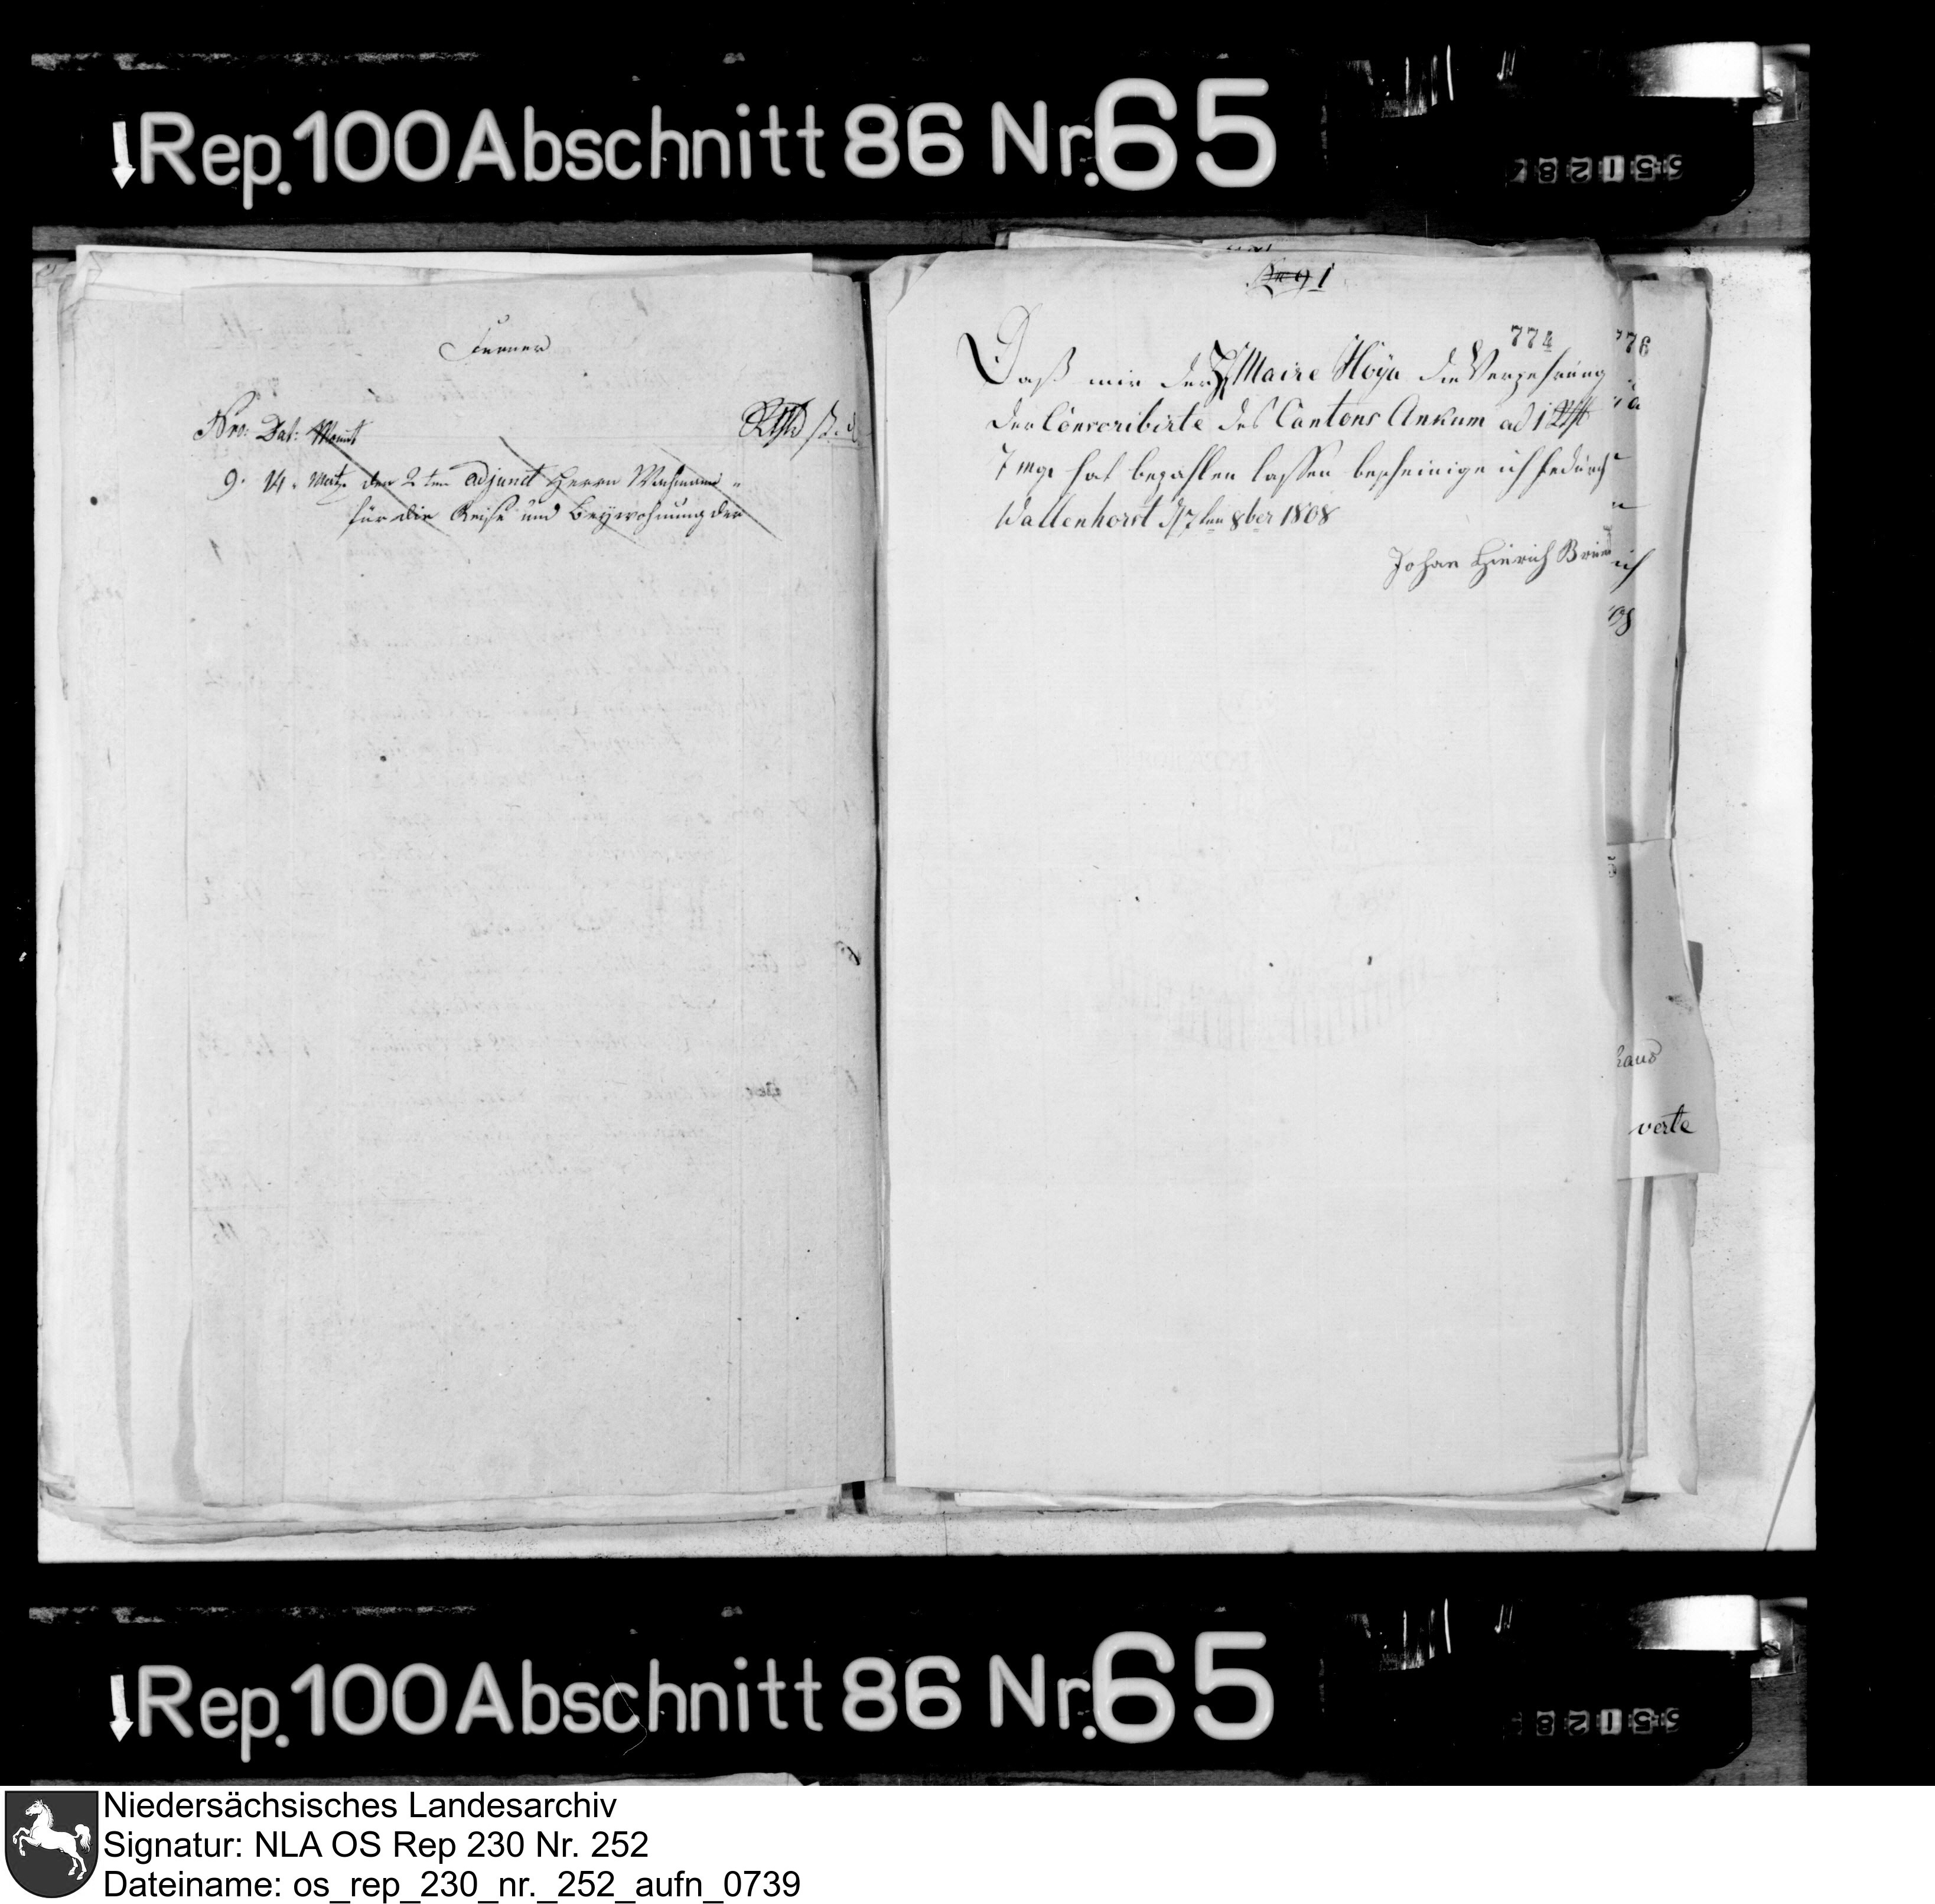 Rep. 100 Abschnitt 86 Nr. 65
Ferner
Nro: Dat: Monat Rthlr ß. d
9. 14. Märtz den 2ten adjunct Herrn Wachmann
für die Reise und Beywohnung der
No 9 1
774
Daß mir der H Maire Höÿn die Verzehrung
der Conscribirte des Cantons Ankum ad 1 Rth
7 mgr hat bezahlen lassen bescheinige ich hedurch
Wallenhorst d 7ten 8ber 1808
Johan Hinrich
776
ich
08
verte
Rep. 100 Abschnitt 86 Nr. 65
Niedersächsisches Landesarchiv
Signatur: NLA OS Rep 230 Nr. 252
Dateiname: os_rep_230_nr._252_aufn_0739